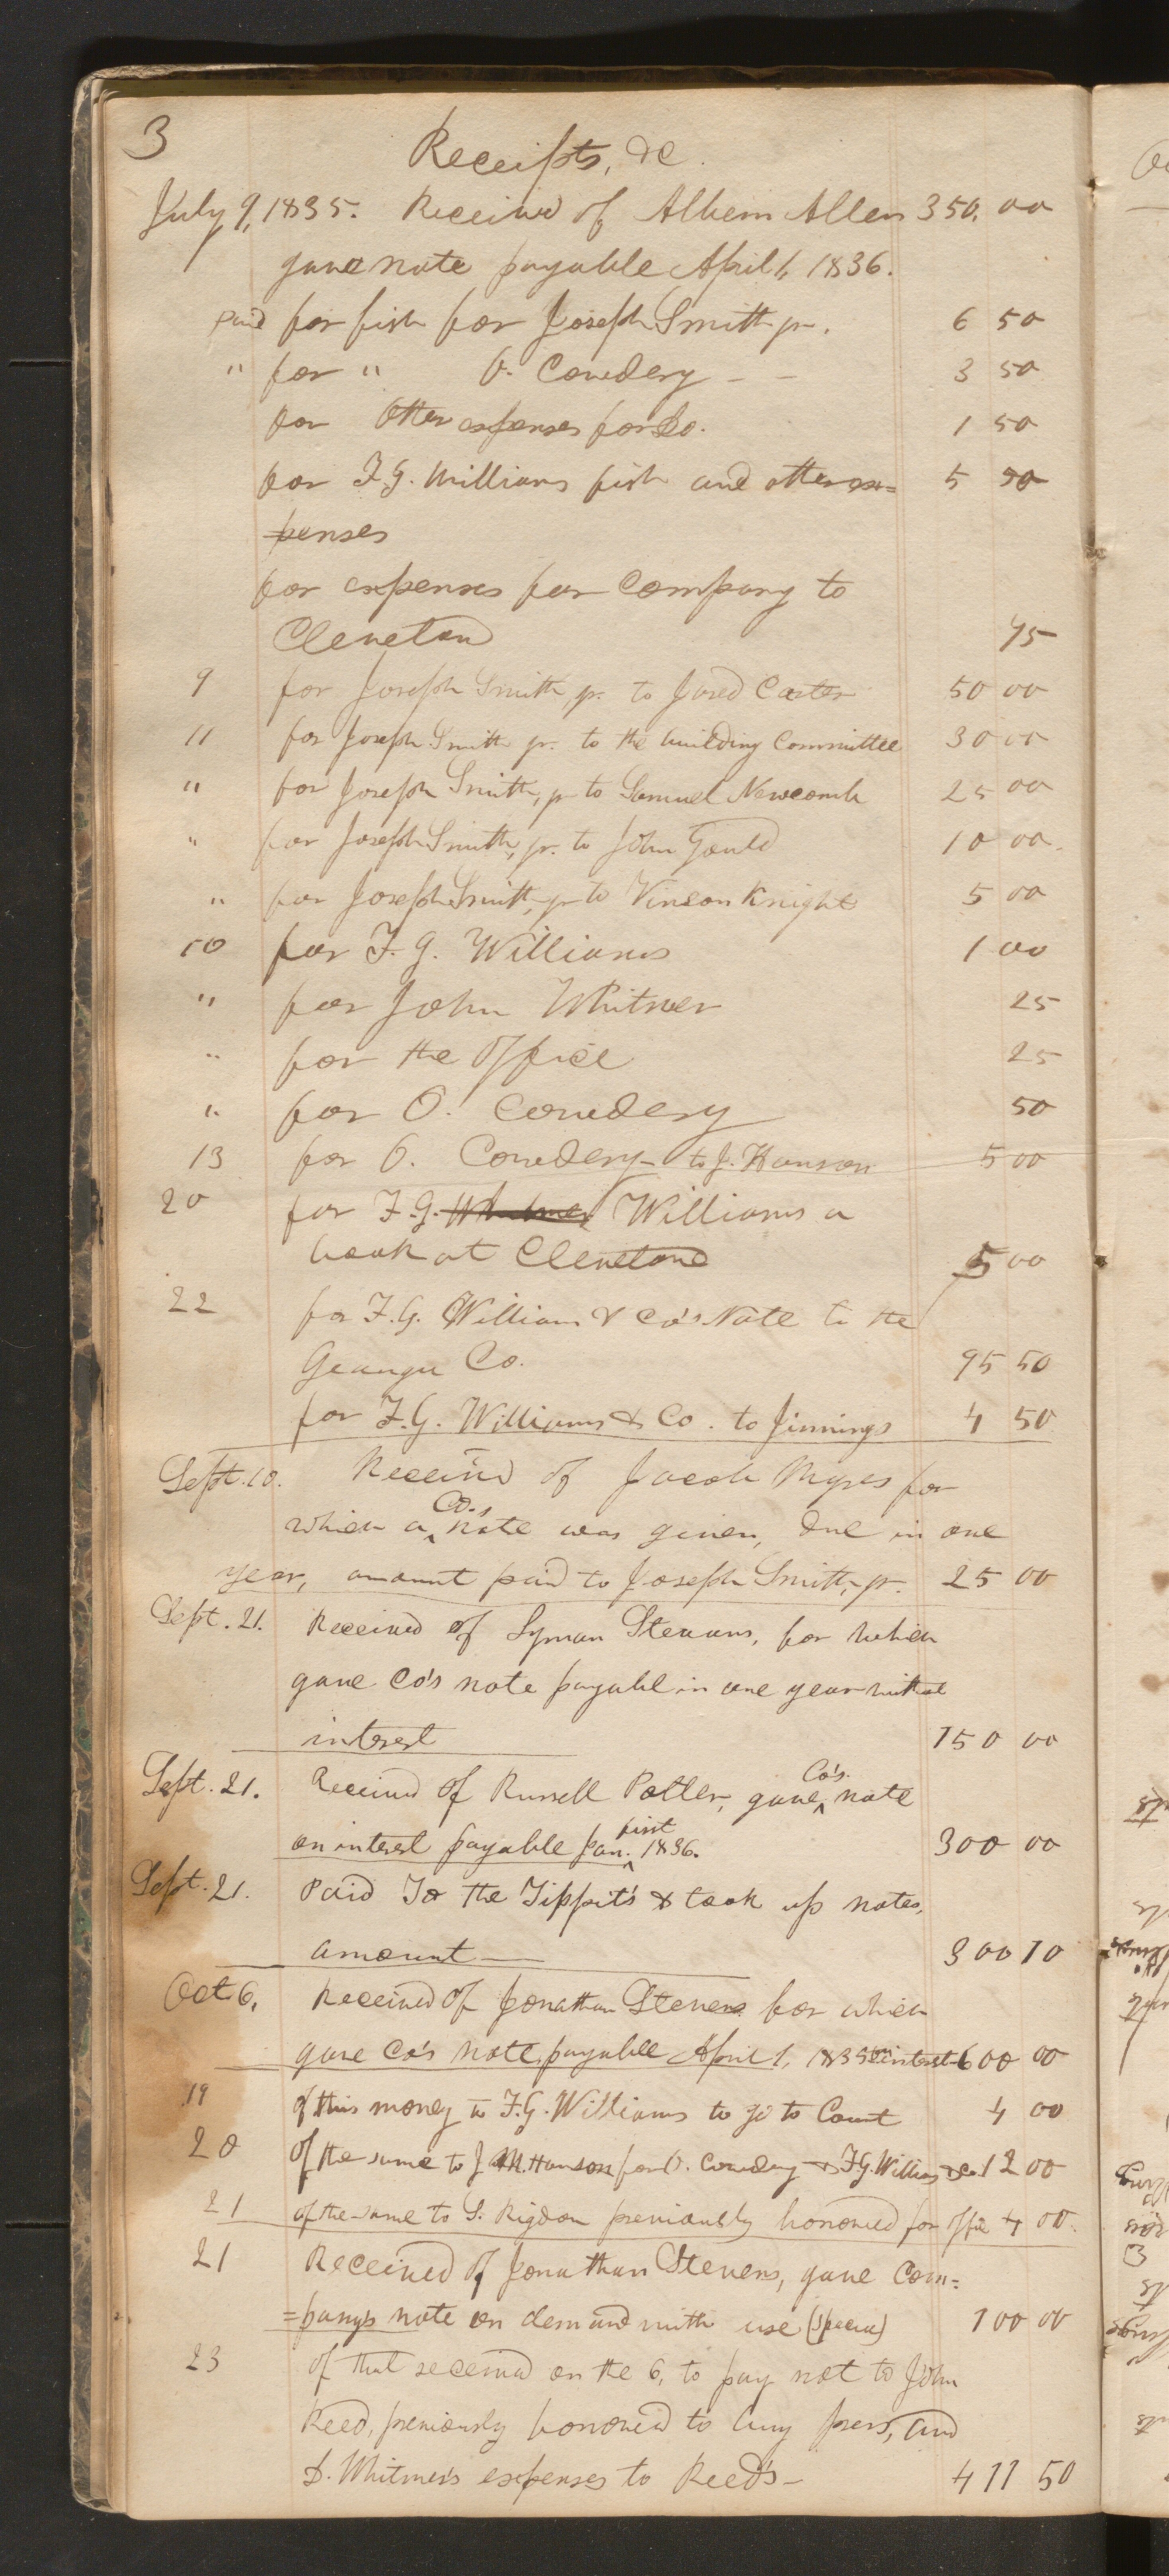 3
Receipts, &c.
July 9, 1835. Received of Alben Allen 350. 00
gave note payable April 1, 1836.
paid for fish for Joseph Smith jr. 6 50
" for " O. Cowdery – – 3 50
for other expenses for do. 1 50
for F. G. Williams fish and other ex= 5 50
penses
for expenses for Company to
Cleveland 75
9 for Joseph Smith, jr. to Jared Carter 50 00
11 for Joseph Smith jr. to the building Committee 30 00
" for Joseph Smith, jr to Samuel Newcomb 25 00
" for Joseph Smith, jr. to John Gould 10 00.
" for Joseph Smith, jr to Vinson Knight 5 00
10 for F. G. Williams 1 00
" for John Whitmer 25
" for the Office 25
" for O. Cowdery 50
13 for O. Cowdery – to J. Hanson 5 00
20 for F. G. Whitmer Williams a
book at Cleveland 5 00
22 for F. G. Williams & Co's Note to the
Geauga Co. 95 50
for F. G. Williams & Co. to Jinnings 4 50
Sept. 10. Received of Jacob Myres for
which a Co.s note was given, due in one
year, amount paid to Joseph Smith, jr. 25 00
Sept. 21. Received of Lyman Stevens, for which
gave Co's note payable in one year without
interest 150 00
Sept. 21. Received of Russell Potter, gave Co's. note
on interest payable Jan. first 1836. 300 00
Sept. 21. Paid To the Tippit's & took up notes,
amount — 300 10
Oct 6, Received of Jonathan Stevens for which
gave Co's note, payable April 1, 1835 on interest 600 00
19 of this money to F. G. Williams to go to Court 4 00
20 of the same to J M. Hanson for O. Cowdery & F. G. Williams & Co. 12 00
21 of the same to S. Rigdon previously borrowed for office 4 00.
21 Received of Jonathan Stevens, gave Com=
=pany's note on demand with use (Specia) 100 00
23 of that received on the 6, to pay not to John
Reed, previously borrowed to buy press, and
D. Whitmer's expenses to Reed's – 411 50